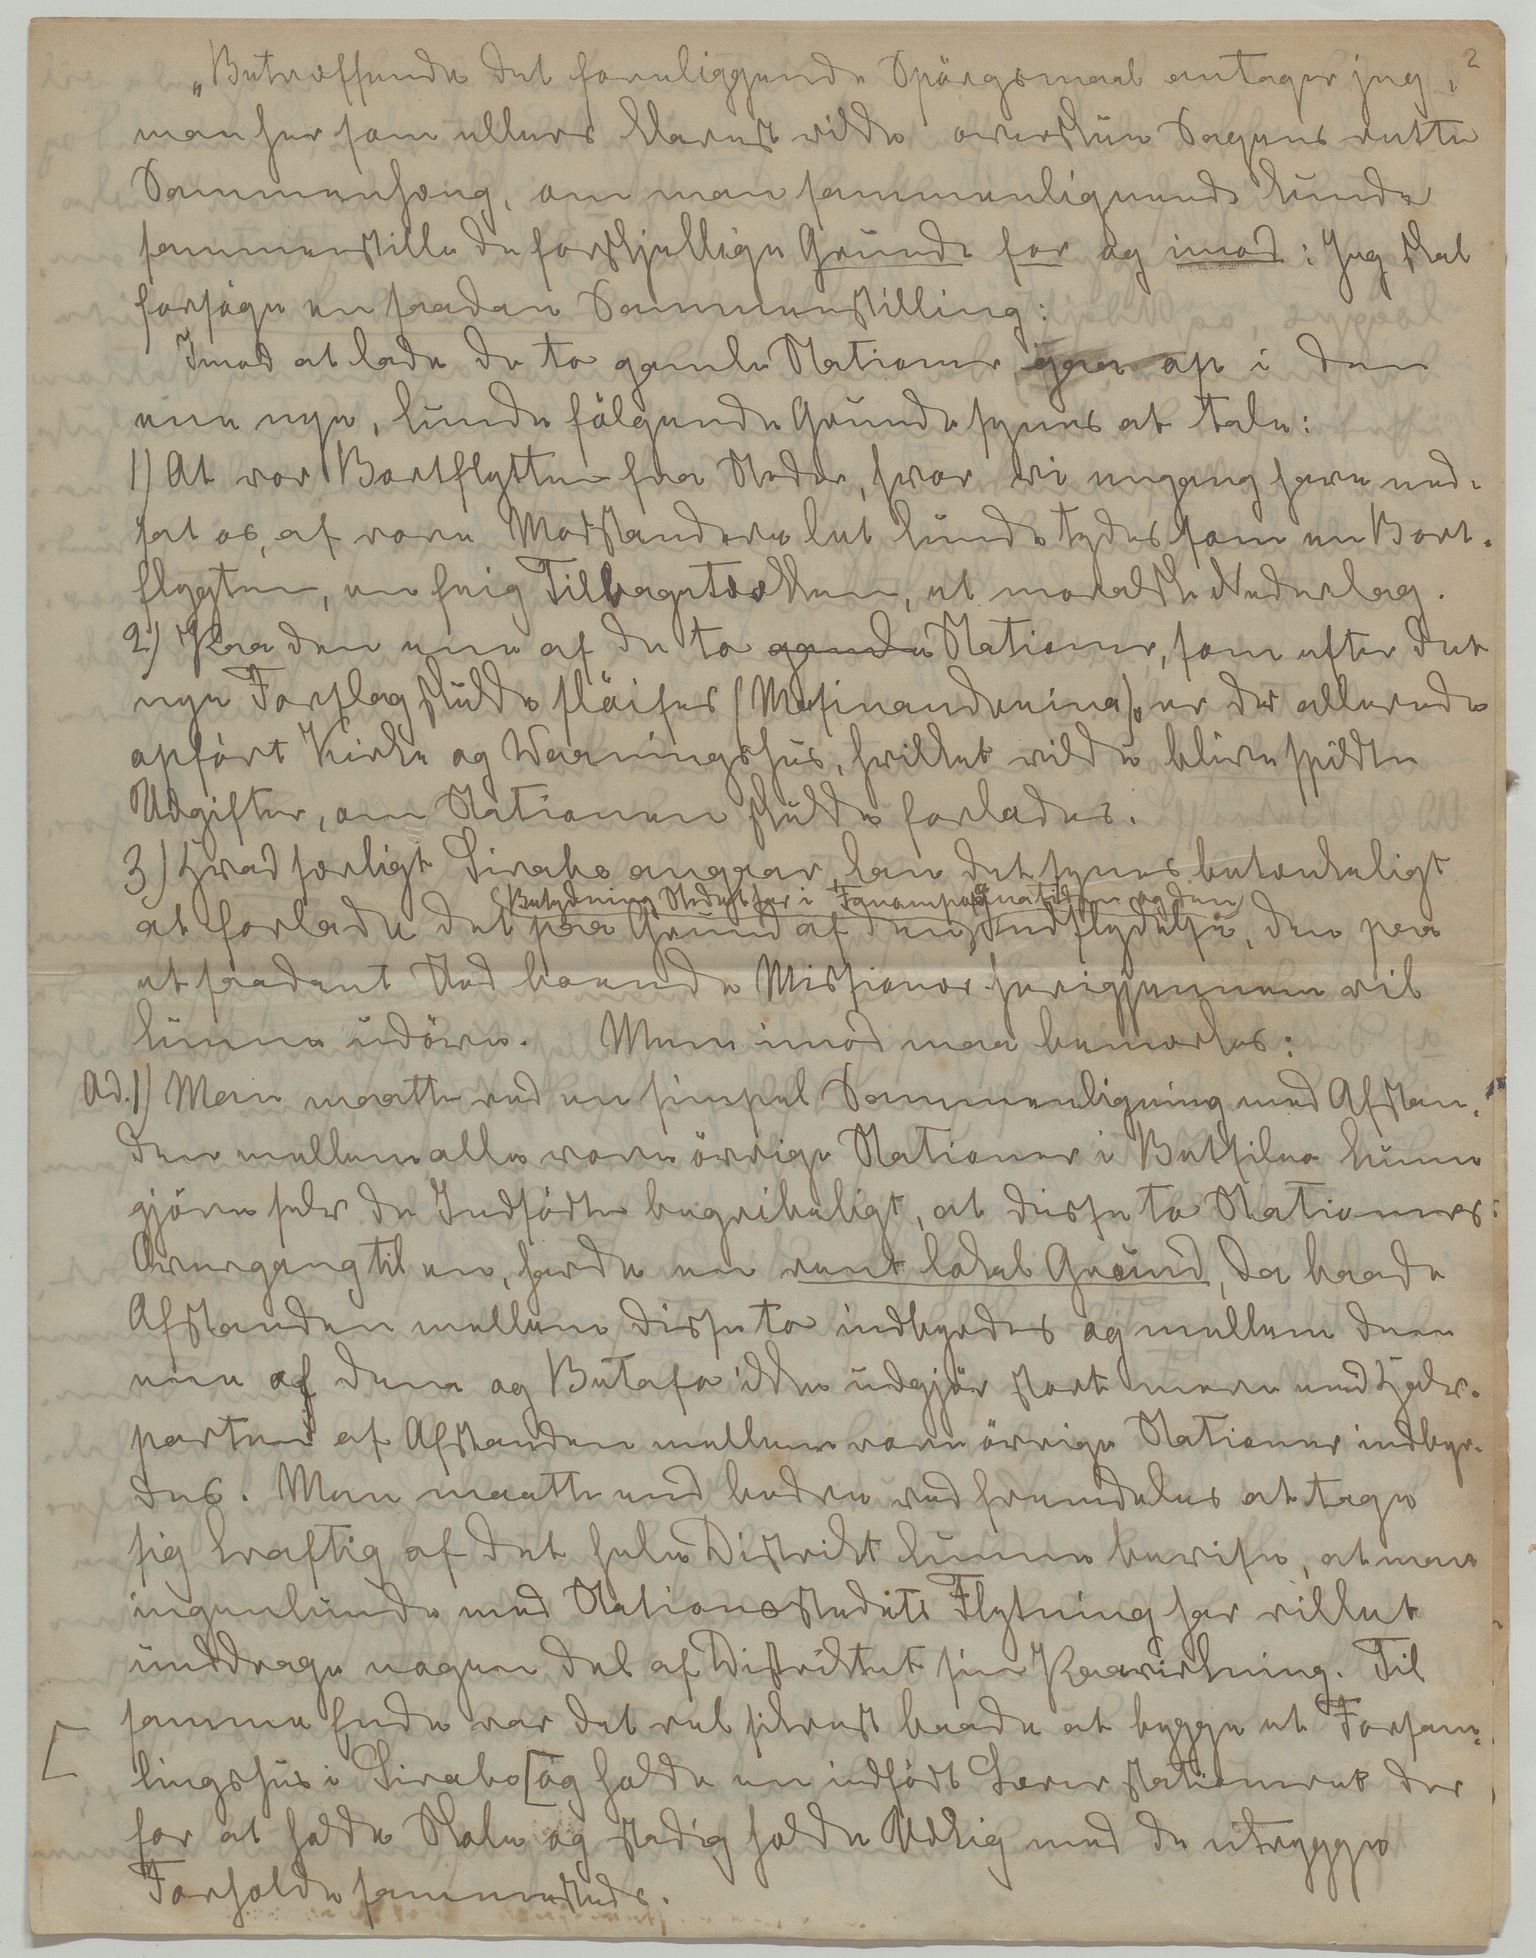 2
„Betræffende det foreliggende Spörgsmaal antager jeg,
man her som ellers klarest vilde overskue Sagens rette
Sammenhæng, om man sammenlignende kunde
sammenstille de forskjellige Grunde for og imod: Jeg skal
forsöge en saadan Sammenstilling:
Imod at lade de to gamle Stationer gaa op i den
ene nye, kunde fölgende Grunde synes at tale:
1) At vor Bortflytten fra Steder, hvor vi engang have ned-
sat os, af vore Modstandere let kunde tydes som en Bort-
flygten, en feig Tilbagetrækken, et moralsk Nederlag.
2) Paa den ene af de to gamle Stationer, som efter det
nye Forslag skulde slöifes (Masinandreina), er der allerede
opfört Kirke og Vaaningshus, hvilket vilde blive spildte
Udgifter, om Stationen skulde forlades.
3) Hvad særligt Sirabe angaar, kan det synes betænkeligt
Betydning Stedet har i Fanompoagnatiden og den
at forlade det paa Grund af den Indflydelse, den paa
et saadant Sted boende Missionær herigjennem vil
kunne udöve. Men imod maa bemærkes:
Ad. 1) Man maatte ved en simpel Sammenligning med Afstan-
den mellem alle vore övrige Stationer i Betsileo kunne
gjöre selv de Indfödte begribeligt, at disse to Stationers
Overgang til en, havde en rent lokal Grund, da baade
Afstanden mellem disse to indbyrdes og mellem den
ene af dem og Betafo ikke udgjör stort mere end Halv-
parten af Afstanden mellem vore övrige Stationer indbyr-
des. Man maatte end bedre ved fremdeles at tage
sig kraftig af det hele Distrikt kunne bevise, at man
ingenlunde med Stationsstedets Flytning har villet
unddrage nogen Del af Distriktet sin Paavirkning. Til
samme Ende var det vel sikrest baade at bygge et Forsam-
lingshus i Sirabe [og holde en indfödt Lærer stationeret der
for at holde Skole og stadig holde Udkig med de utrygge
Forholde sammesteds.
[